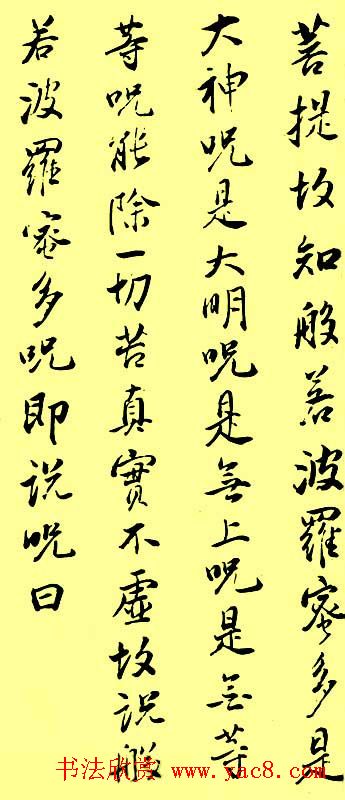 菩提故知般若波羅蜜多是
大神咒是大明咒是無上咒是無等
等咒能除一切苦真實不虛故説般
若波羅蜜多咒即説咒曰
书法欣赏 www.yac8.com